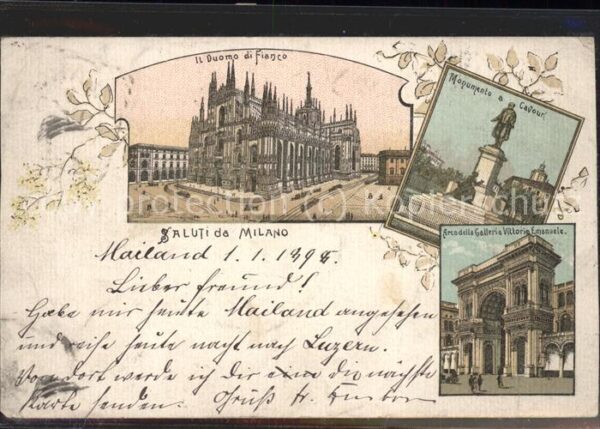 Il Duomo di Fianco
Monumento a Cavour
Saluti da Milano
Arco della Galleria Vittorio Emanuele.
Mailand 1.1.1898.
Lieber Freund!
Habe mir heute Mailand angesehen
und reise heute nacht nach Luzern.
Von dort werde ich dir eine die nächste
Karte senden. Gruß